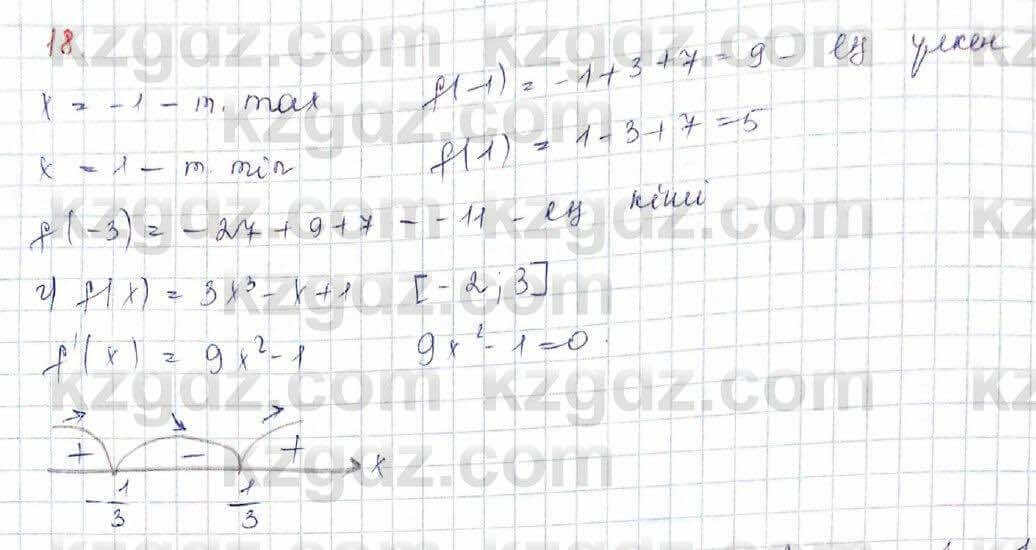 18.
x = -1 - т. max f(-1) = -1+3+7=9 - ең үлкен
x = 1 - т. min f(1) = 1-3+7=5
f(-3) = -27+9+7 = -11 - ең кіші
г) f(x) = 3x³-x+1 [-2; 3]
f'(x) = 9x²-1 9x²-1=0.
+ - + x
-1/3 1/3
kzgdz.com